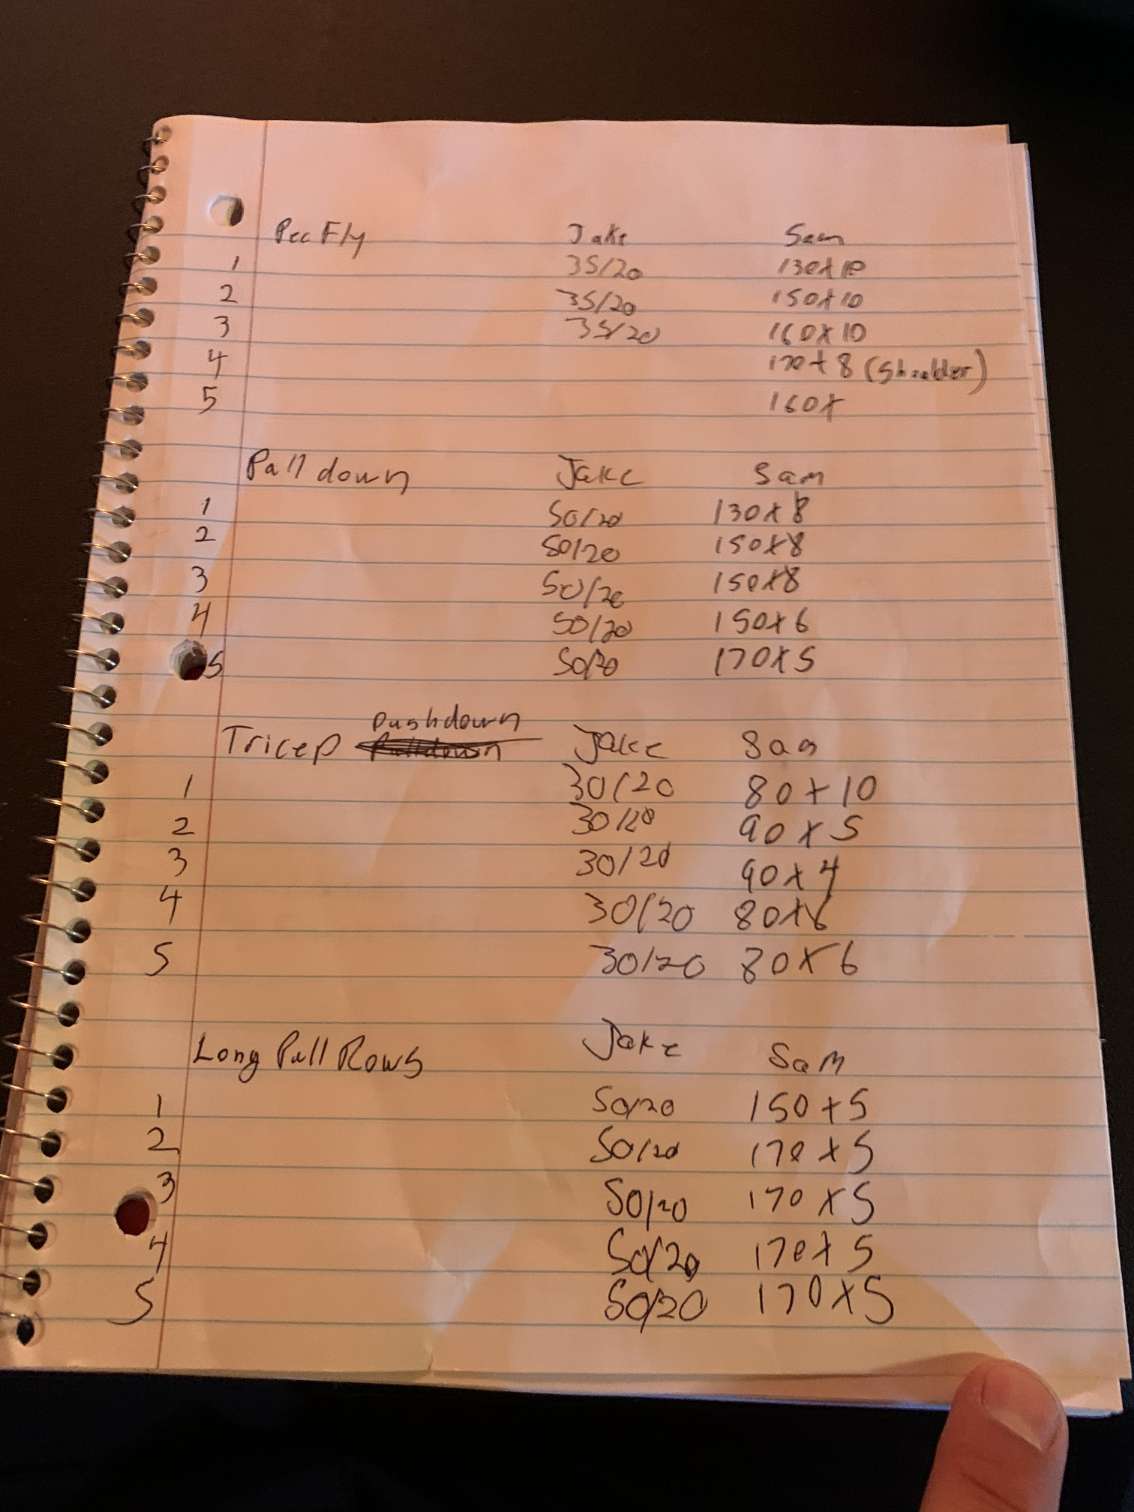 Pec Fly Jake Sam
1 35/20 130x10
2 35/20 150x10
3 35/20 160x10
4 170x8 (Shoulder)
5 160x
Pulldown Jake Sam
1 50/20 130x8
2 50/20 150x8
3 50/20 150x8
4 50/20 150x6
5 50/20 170x5
Pushdown
Tricep Pulldown Jake Sam
1 30/20 80x10
2 30/20 90x5
3 30/20 90x4
4 30/20 80x6
5 30/20 80x6
Long Pull Rows Jake Sam
1 50/20 150x5
2 50/20 170x5
3 50/20 170x5
4 50/20 170x5
5 50/20 170x5